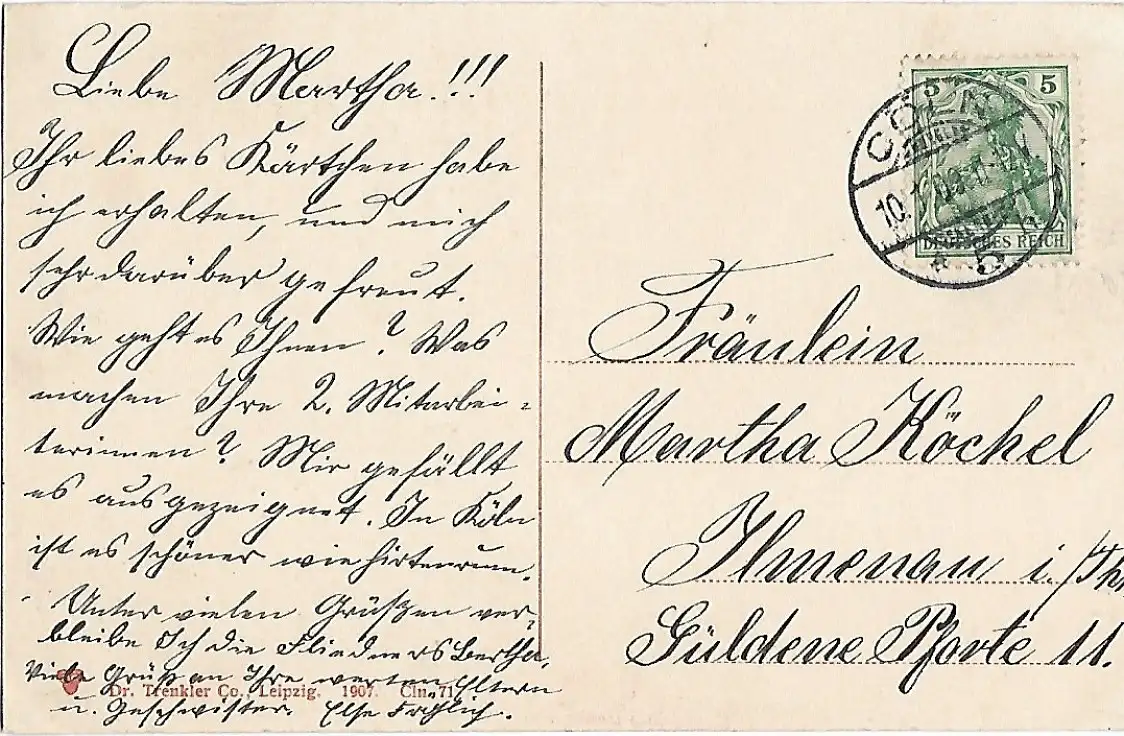 Liebe Martha!!!
Ihr liebes Kärtchen habe
ich erhalten, und mich
sehr darüber gefreut.
Wie geht es Ihnen? Was
machen Ihre 2. Mitarbei-
terinnen? Mir gefällt
es ausgezeignet. In Köln
ist es schöner wie
Unter vielen Grüßen ver-
bleibe Ich die Bertha,
Viele Grüße an Ihre werten Eltern
u. Geschwister. Else
Dr. Trenkler Co., Leipzig. 1907. Cln. 71
5
CÖLN
DEUTSCHES REICH
Fräulein
Martha Köchel
Ilmenau i/Th
Güldene Pforte 11.